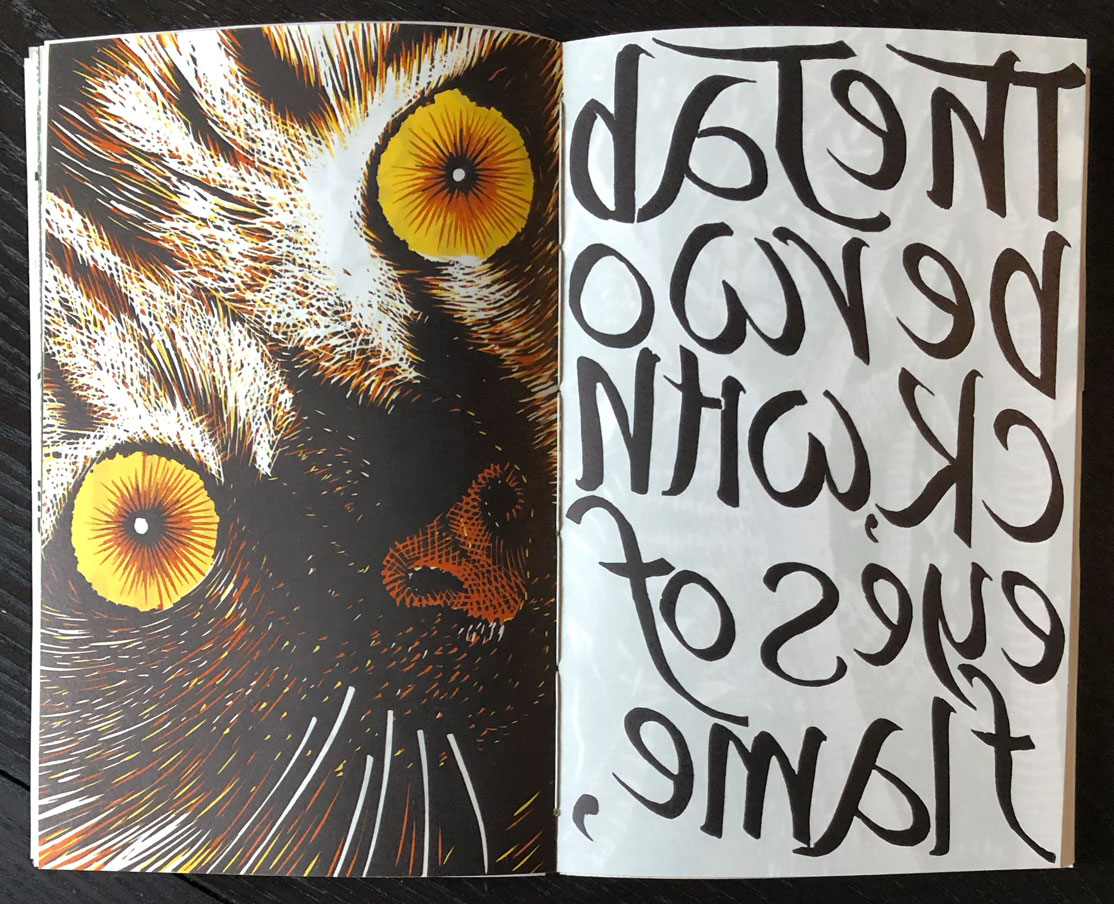 The Jab
berwo
ck, with
eyes of
flame,